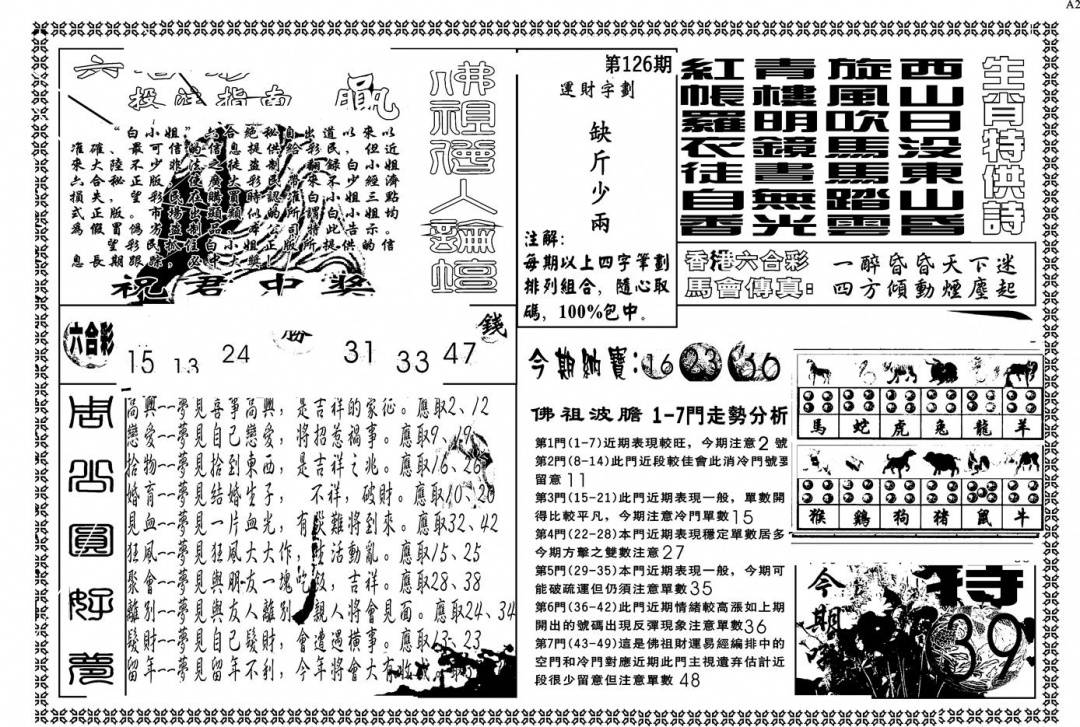 A2
六合彩
投注指南 贏
"白小姐"六合絕秘自出道以來以
准確、最可信的信息提供給彩民，但近
來大陸不少非法之徒盜制、翻録白小姐
六合秘正版，使廣大彩民帶來不少經濟
損失，望彩民在購買時認准白小姐三點
式正版。市場出現類似的所謂白小姐均
爲假冒僞方盜制品。本公司特此告示。
望彩民抓住白小姐正版所提供的信
息長期跟踪。必中大獎！
祝君中獎
佛祖僊人論壇
第126期
運財字劃
缺斤少兩
注解：
每期以上四字筆劃
排列組合，隨心取
碼，100%包中。
生肖特供詩
西山日没東山昏
旋風吹馬馬踏雲
青樓明鏡晝無光
紅帳羅衣徒自香
香港六合彩
馬會傳真：
一醉昏昏天下迷
四方傾動煙塵起
六合彩
15 13 24 勝 31 33 47 錢
周公圓好夢
高興--夢見喜事高興，是吉祥的家征。應取2、12
戀愛--夢見自己戀愛，將招惹禍事。應取9、19
拾物--夢見拾到東西，是吉祥之兆。應取16、26
婚育--夢見結婚生子，不祥，破財。應取10、20
見血--夢見一片血光，有災難將到來。應取32、42
狂風--夢見狂風大大作，生活動亂。應取15、25
聚會--夢見與朋友一塊吃飯，吉祥。應取28、38
離別--夢見與友人離別，親人將會見面。應取24、34
發財--夢見自己發財，會遭遇橫事。應取13、23
留年--夢見留年不利，今年將會大有收
今期納寶：16 23 36
佛祖波膽 1-7門走勢分析
第1門(1-7)近期表現較旺，今期注意2號
第2門(8-14)此門近段較佳會此消冷門號
留意11
第3門(15-21)此門近期表現一般，單數開
得比較平凡，今期注意冷門單數15
第4門(22-28)本門近期表現穩定單數居多
今期方擊之雙數注意27
第5門(29-35)本門近期表現一般，今期可
能破疏運但仍須注意單數35
第6門(36-42)此門近期情緒較高漲如上期
開出的號碼出現反彈現象注意單數36
第7門(43-49)這是佛祖財運易經編排中的
空門和冷門對應近期此門主視遺弃估計近
段很少留意但注意單數48
馬 蛇 虎 兔 龍 羊
猴 鷄 狗 猪 鼠 牛
今期
特
39